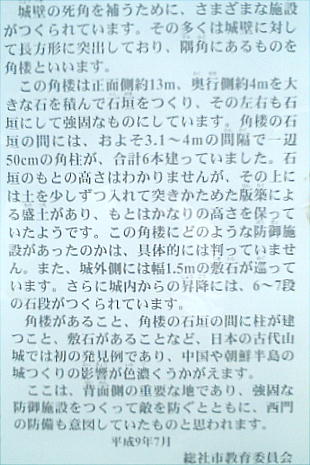 城壁の死角を補うために、さまざまな施設
がつくられています。その多くは城壁に対し
て長方形に突出しており、隅角にあるものを
角楼といいます。
この角楼は正面側約13m、奥行側約4mを大
きな石を積んで石垣をつくり、その左右も石
垣にして強固なものにしています。角楼の石
垣の間には、およそ3.1～4mの間隔で一辺
50cmの角柱が、合計6本建っていました。石
垣のもとの高さはわかりませんが、その上に
は土を少しずつ入れて突きかためた版築によ
る盛土があり、もとはかなりの高さを保って
いたようです。この角楼にどのような防御施
設があったのかは、具体的には判っていませ
ん。また、城外側には幅1.5mの敷石が巡って
います。さらに城内からの昇降には、6～7段
の石段がつくられています。
角楼があること、角楼の石垣の間に柱が建
つこと、敷石があることなど、日本の古代山
城では初の発見例であり、中国や朝鮮半島の
城つくりの影響が色濃くうかがえます。
ここは、背面側の重要な地であり、強固な
防御施設をつくって敵を防ぐとともに、西門
の防備も意図していたものと思われます。
平成9年7月
総社市教育委員会